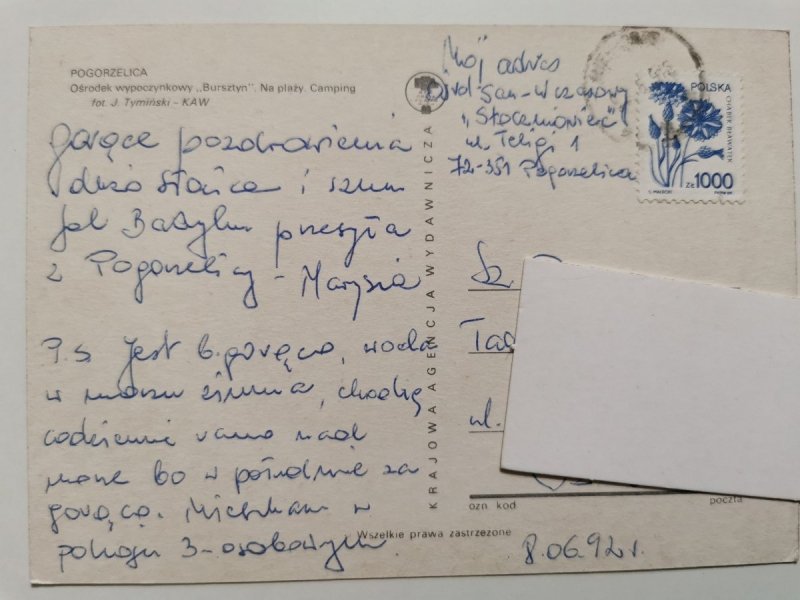 POGORZELICA
Ośrodek wypoczynkowy „Bursztyn". Na plaży. Camping
fot. J. Tymiński - KAW
Gorące pozdrowienia
dużo słońca i szum
fal Bałtyku przesyła
z Pogorzelicy - Marysia
P.S Jest b. gorąco, woda
w morzu zimna, chodzę
codziennie rano nad
morze bo w południe za
gorąco. Mieszkam w
pokoju 3-osobowym.
KRAJOWA AGENCJA WYDAWNICZA
Mój adres
San-Wczasowy
„Stoczniowiec"
ul. Teligi 1
72-351 Pogorzelica
POLSKA
CHABER BŁAWATEK
ZŁ 1000
Sz.
Tad
ul.
ozn kod
poczta
Wszelkie prawa zastrzeżone
8.06.92 r.